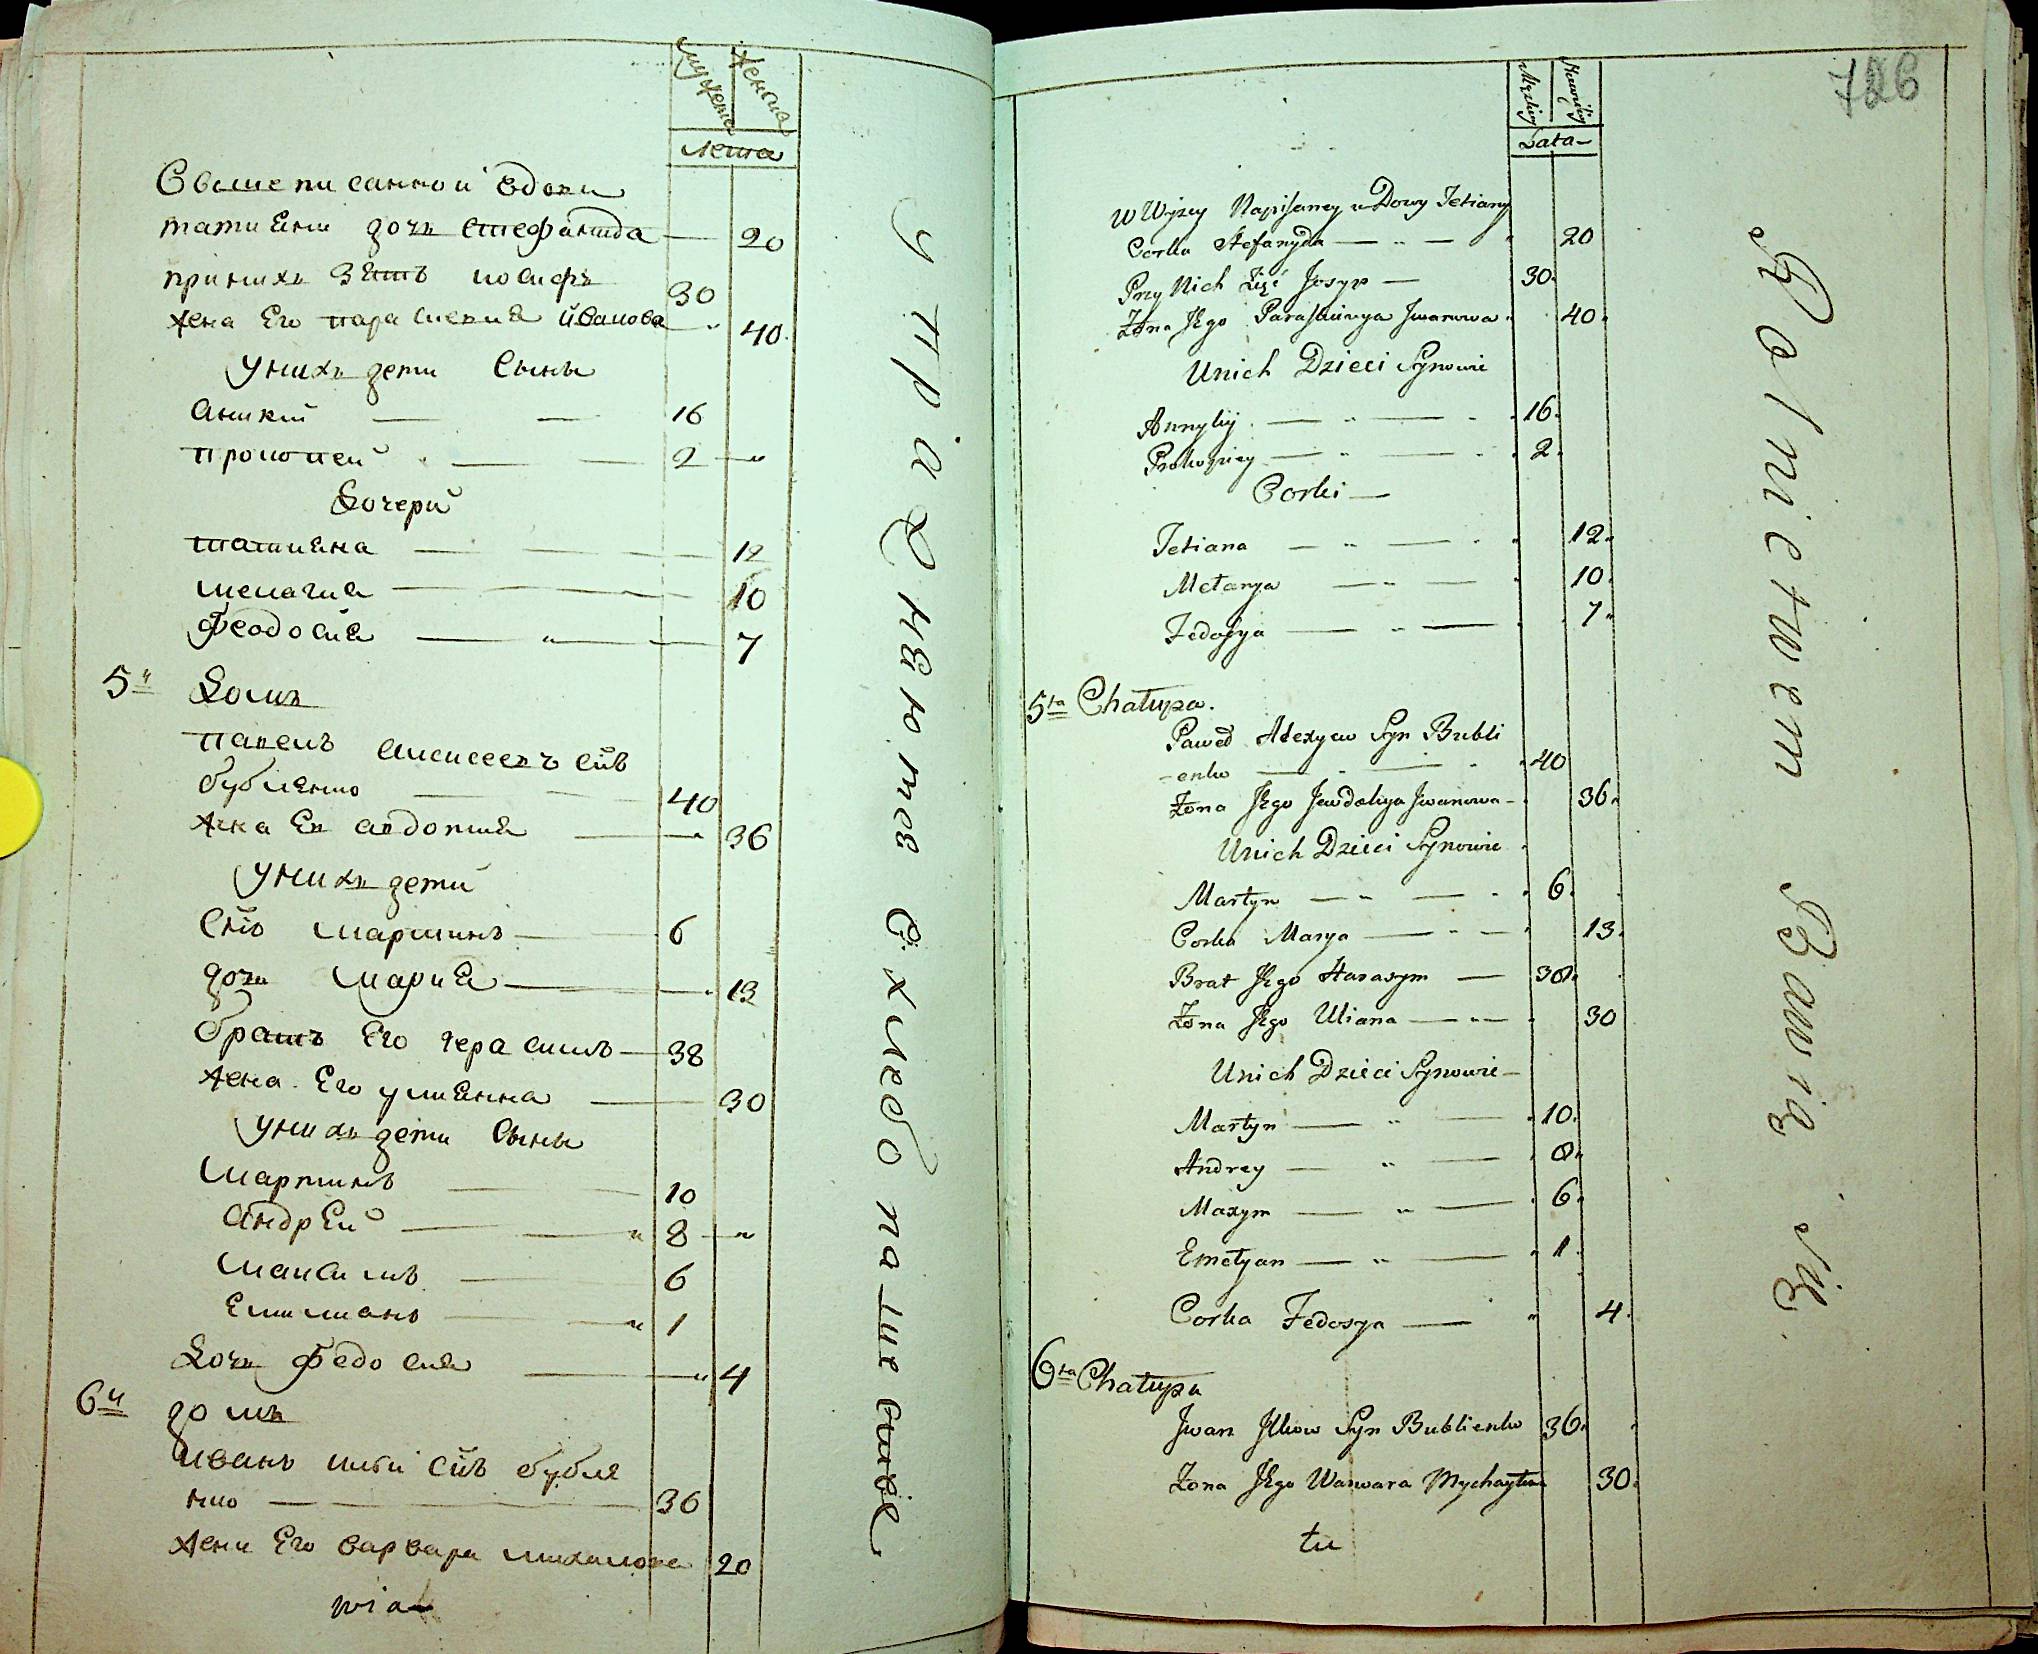 мужеска
женска
лета
Свыше писанной вдови
татиѣни дочъ стефанида 20
принихъ зять иосифъ 30
жена Его параскевия йванова 40
Унихъ дети Сыны
Аникий 16
прокопей 2
Дочерй
татиѣна 12
мелания 10
Феодосия 7
5й Домъ
павелъ алексеевъ сйъ
бубленко 40
жена Ев авдотия 36
Унихъ детй
Сйъ мартинъ 6
дочъ мария 13
братъ Его герасимъ 38
жена Его улиянна 30
Унихъ дети Сыны
мартинъ 10
Андрѣй 8
максимъ 6
Емилианъ 1
Дочъ федосия 4
6й домъ
иванъ илки сйъ бубле
нко 36
жени Его варвара михилова 20
упражнѣютсѣ С хлебопашисивѣ
726
Męzkiey
Zenskiey
Lata
W Wyzey Napisaney u Dowy Tetiany
Corka Stefanyda 20
Przy Nich Zięć Josyp 30
Zona Jego Paraskiwya Jwanowa 40
Unich Dzieci Synowie
Annykij 16
Prokopiey 2
Corki
Tetiana 12
Mełanya 10
Fedosya 7
5ta Chałupa.
Paweł Alexyew Syn Bubli
-enko 40
Zona Jego Jewdokya Jwanowa 36
Unich Dzieci Synowie
Martyn 6
Corka Marya 13
Brat Jego Harasym 38
Zona Jego Uliana 30
Unich Dzieci Synowie
Martyn 10
Andrey 8
Maxym 6
Emełyan 1
Corka Fedosya 4
6ta Chałupa
Jwan Jlkow Syn Bublienko 36
Zona Jego Warwara Mychayłow 30
Rolnictwem Bawią się